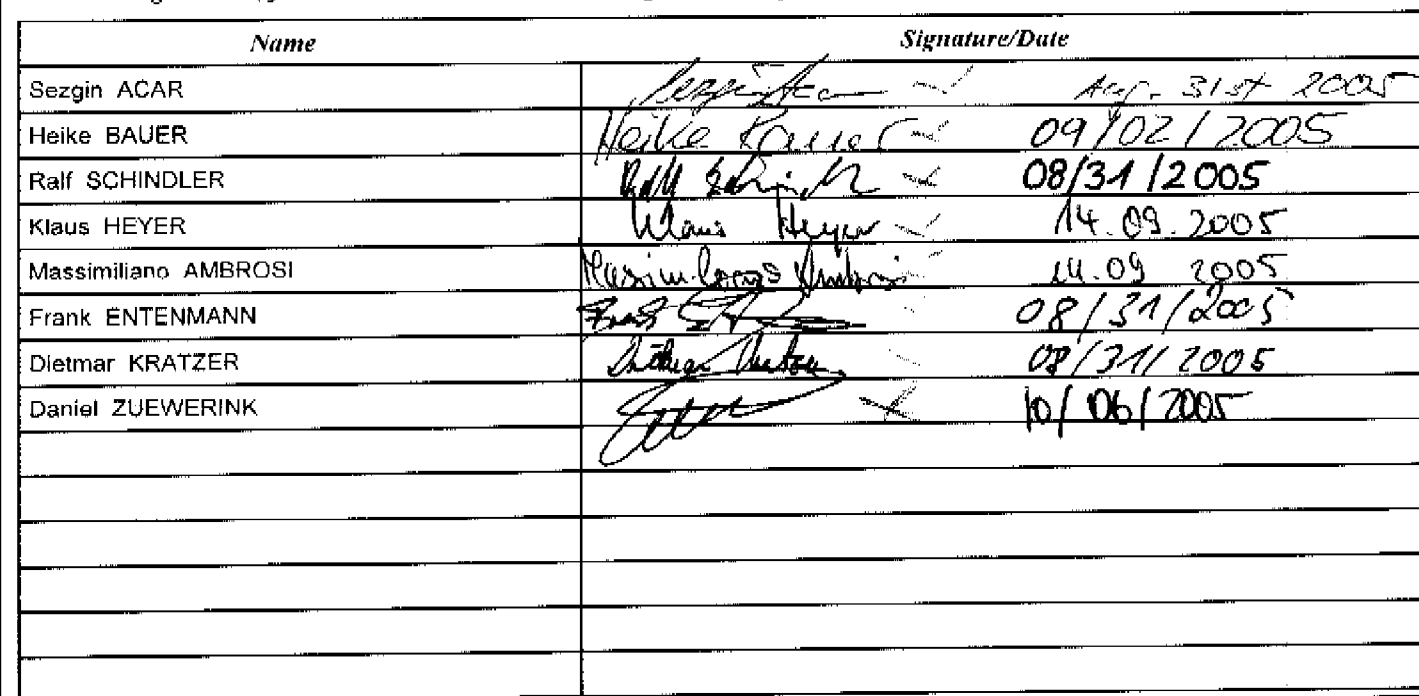 Name Signature/Date
Sezgin ACAR Aug. 31st 2005
Heike BAUER Heike Bauer 09/02/2005
Ralf SCHINDLER Ralf Schindler 08/31/2005
Klaus HEYER Klaus Heyer 14.09.2005
Massimiliano AMBROSI Ambrosi 14.09 2005
Frank ENTENMANN Frank 08/31/2005
Dietmar KRATZER Dietmar Kratzer 08/31/2005
Daniel ZUEWERINK 10/06/2005